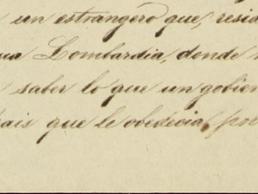 un estrangero que, resid
ua Lombardia, donde
saber lo que un gobier
pais que le obedecia, por